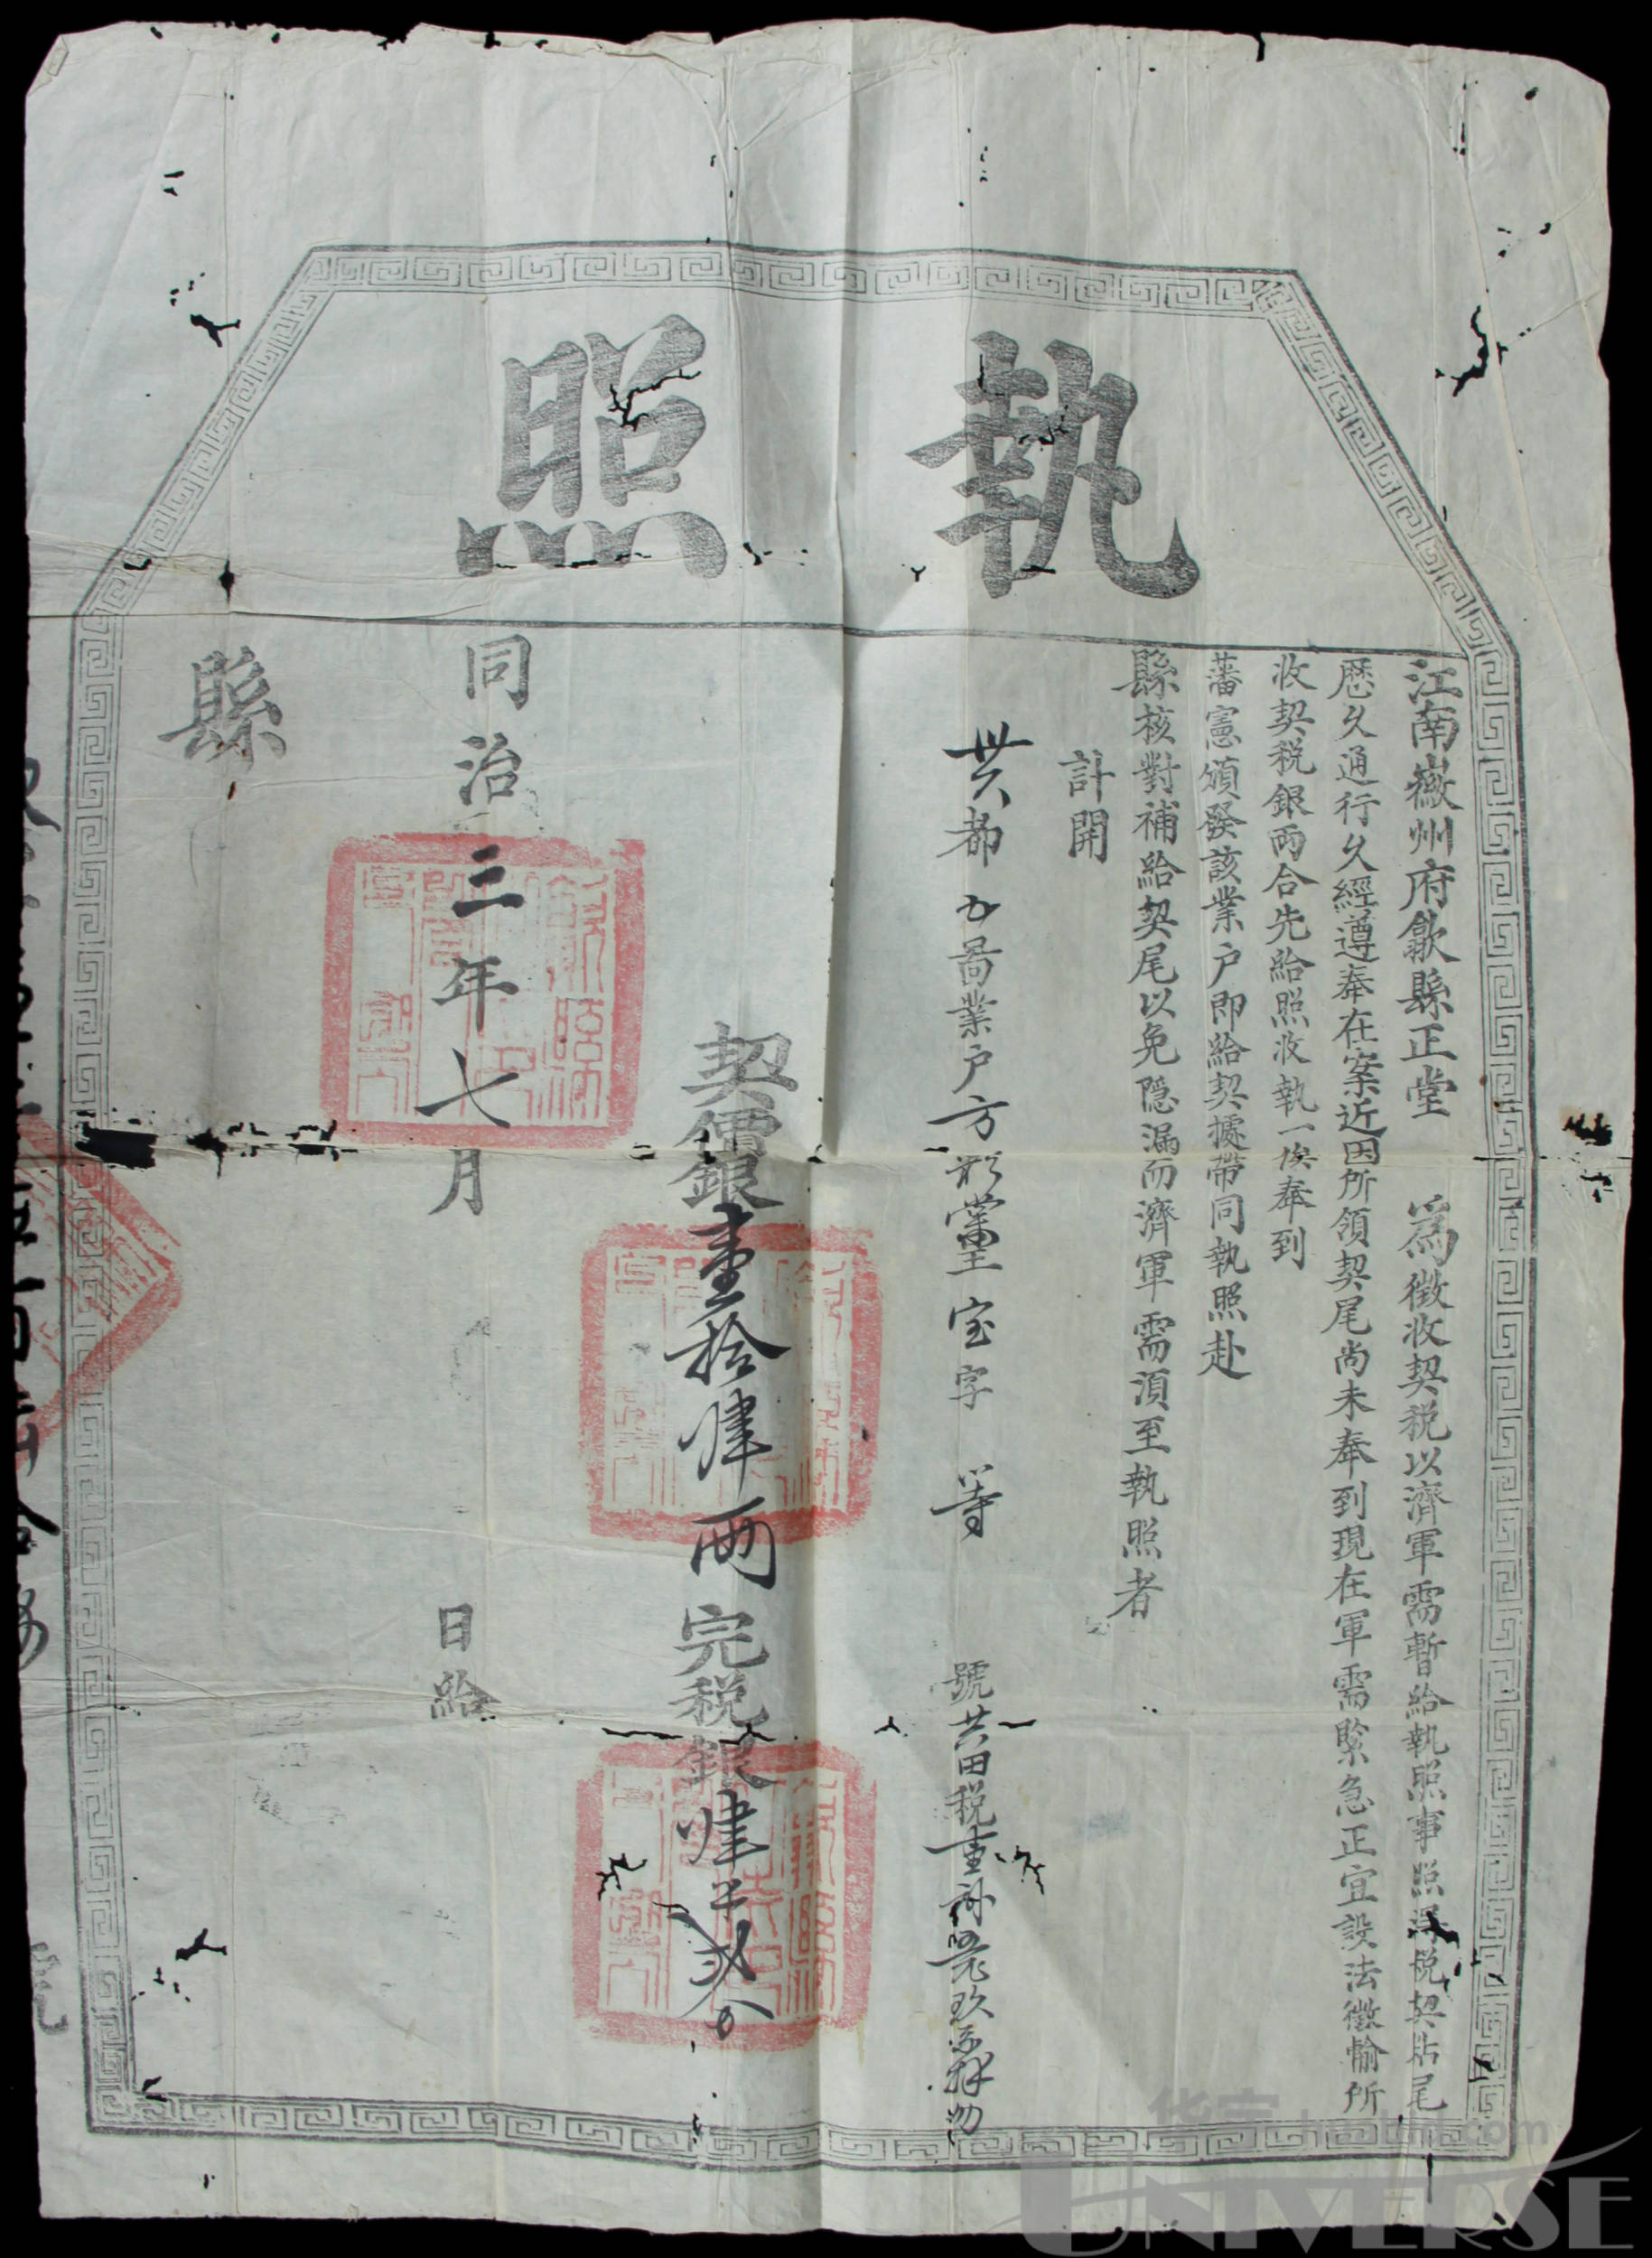 執照
江南徽州府歙縣正堂 為徵收契税以濟軍需暫給執照事照得税契粘尾
歷久通行久經遵奉在案近因所領契尾尚未奉到現在軍需緊急正宜設法徵輸所
收契税銀兩合先給照收執一俟奉到
藩憲頒發該業户即給契據帶同執照赴
縣核對補給契尾以免隐漏而濟軍需須至執照者
計開
都 啚業户方 字 等 號共田税
契價銀壹拾肆兩完税銀肆 貳分
同治三年七月 日給
縣